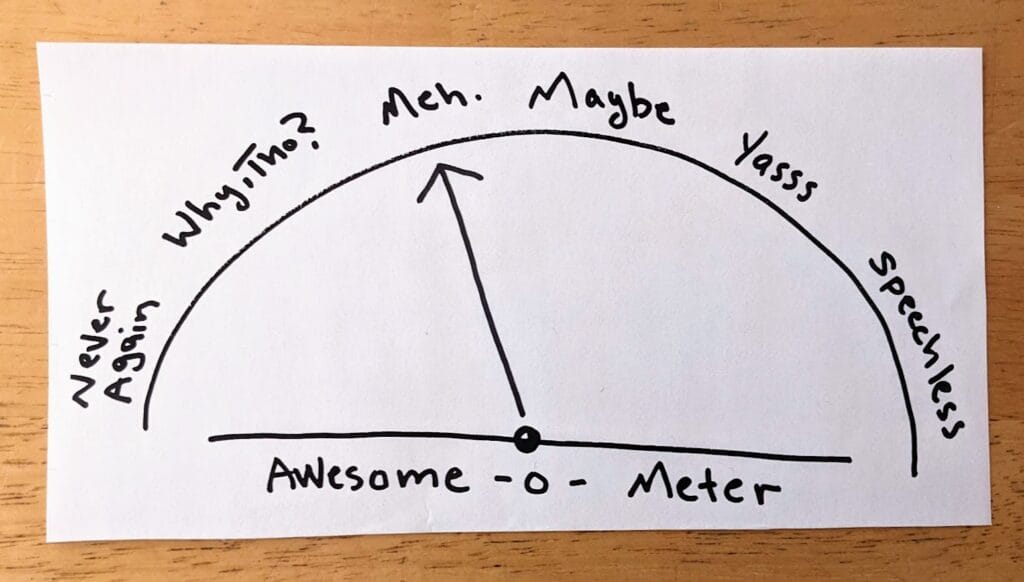 Never
Again
Why, Tho?
Meh.
Maybe
Yasss
Speechless
Awesome-o-Meter